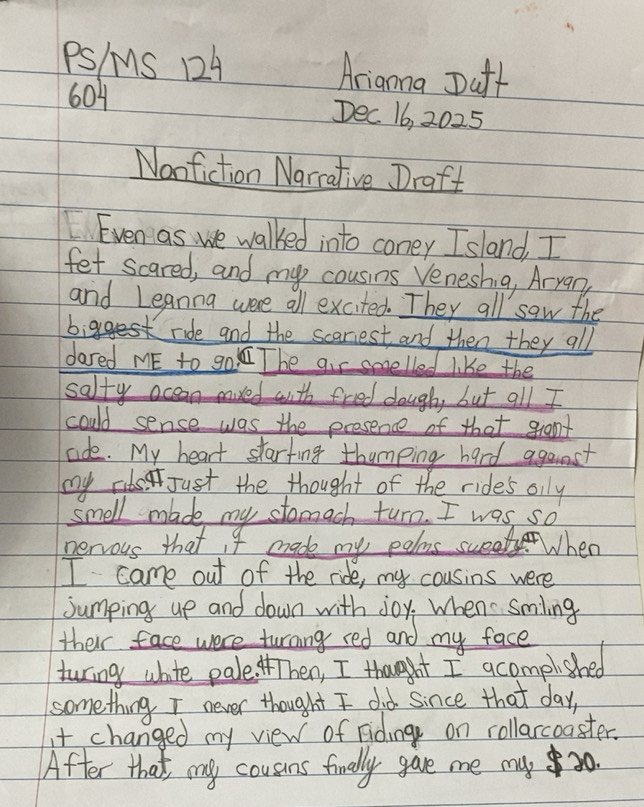 PS/MS 124
Arianna Dutt
604
Dec. 16, 2025
Nonfiction Narrative Draft
Even as we walked into coney Island, I
fet scared, and my cousins Veneshia, Aryan,
and Leanna were all excited. They all saw the
biggest ride and the scariest and then they all
dared ME to go. The air smelled like the
salty ocean mixed with fried dough, but all I
could sense was the presence of that giant
ride. My heart starting thumping hard against
my ribs. Just the thought of the ride's oily
smell made my stomach turn. I was so
nervous that it made my palms sweaty. When
I came out of the ride, my cousins were
jumping up and down with joy. When smiling
their face were turning red and my face
turing white pale. Then, I thought I acomplished
something I never thought I did. Since that day,
it changed my view of riding on rollarcoaster.
After that, my cousins finally gave me my $20.